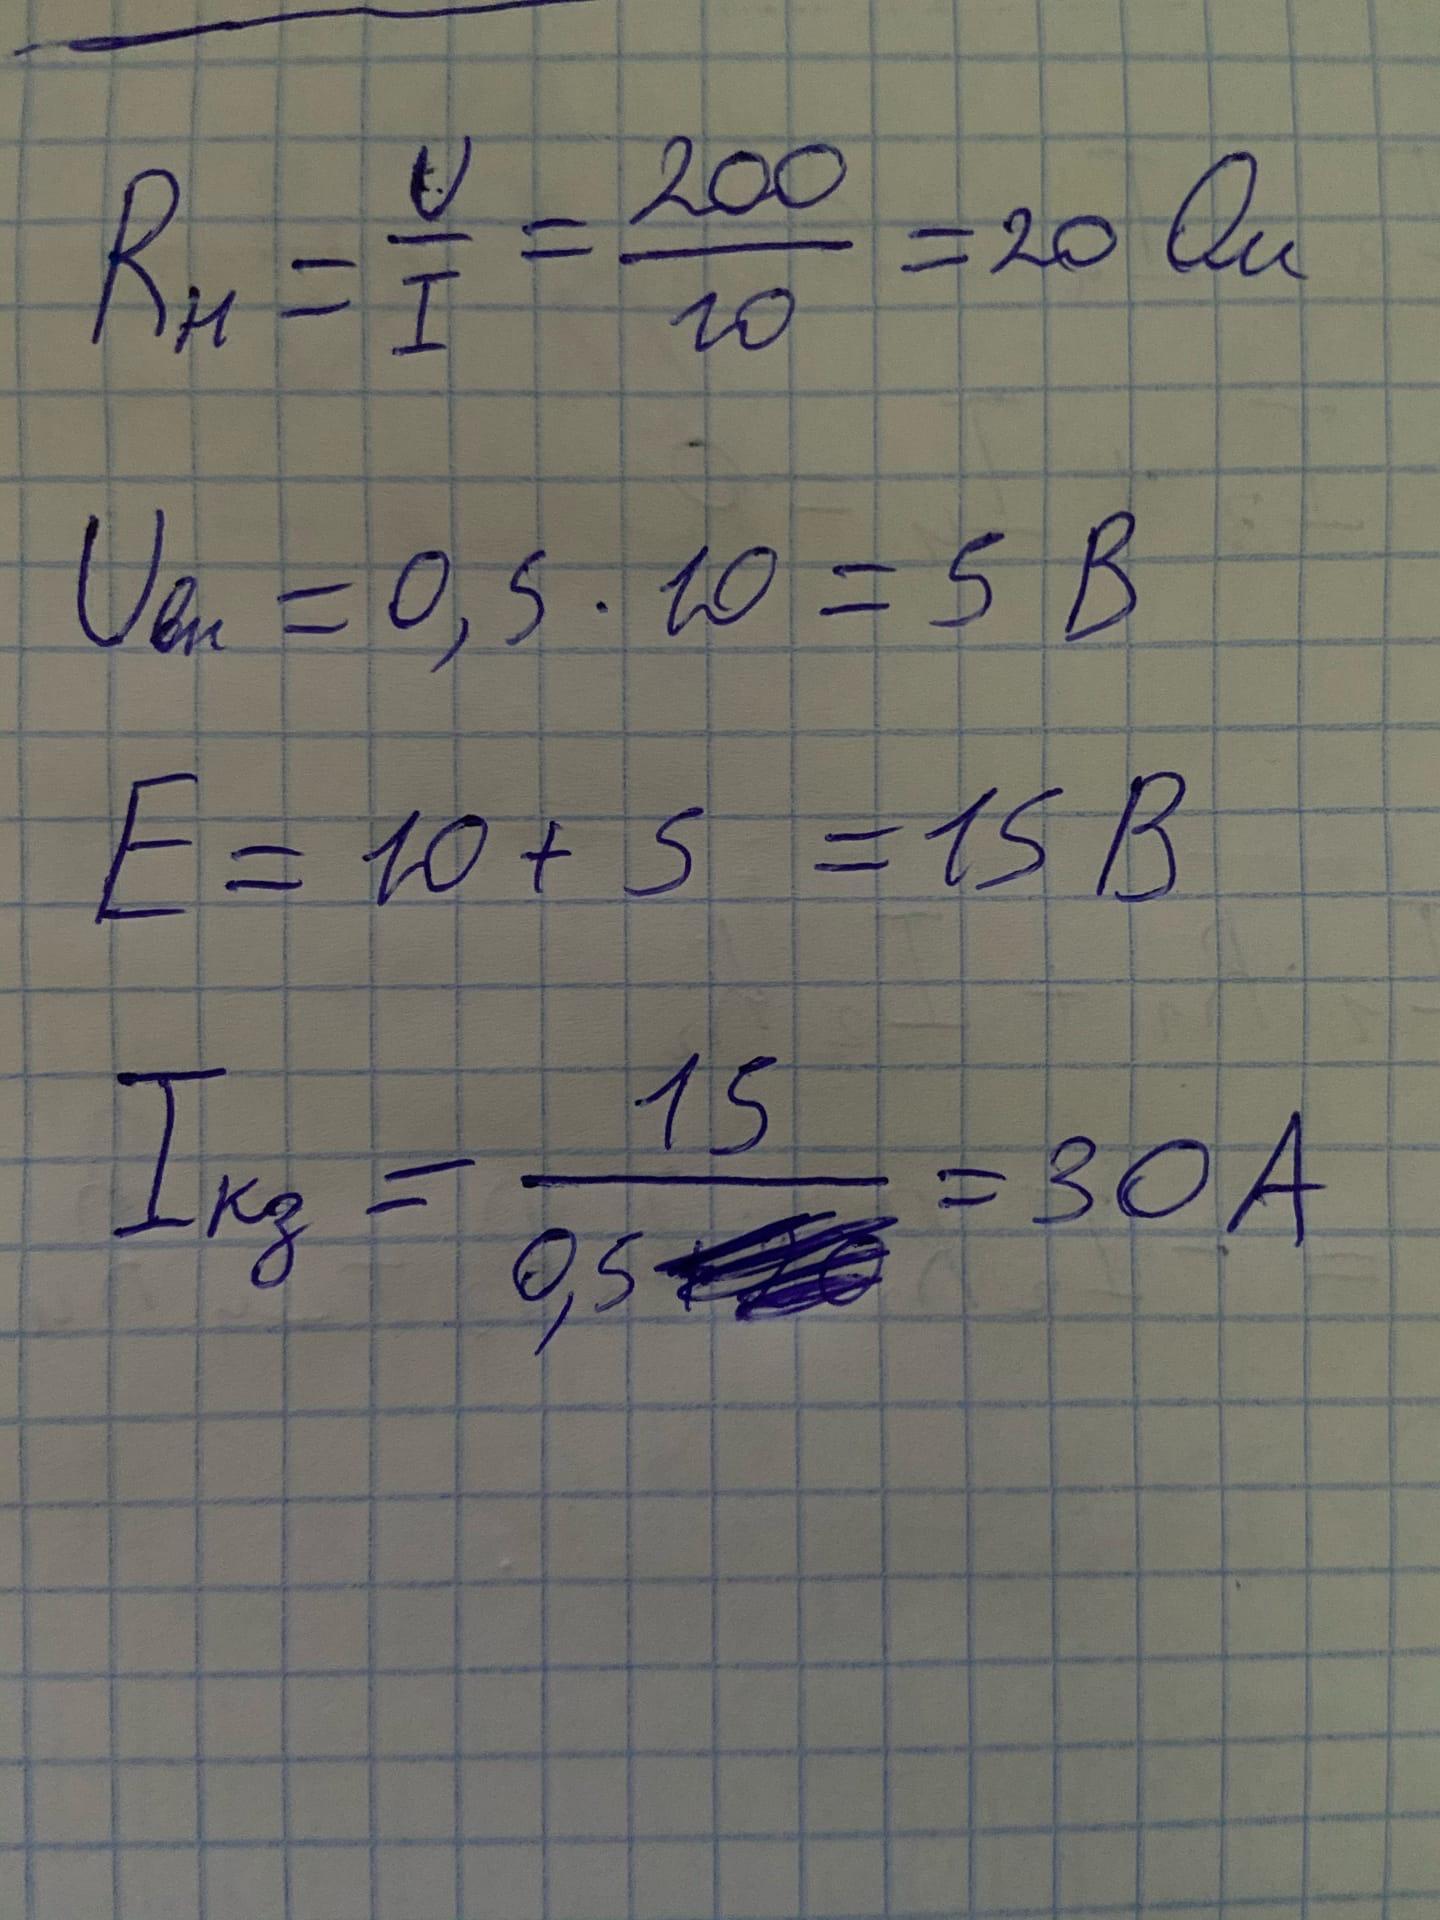 Rн = U/I = 200/10 = 20 Ом
Uвн = 0,5 · 10 = 5 В
E = 10 + 5 = 15 В
Iкз = 15/0,5 = 30 А